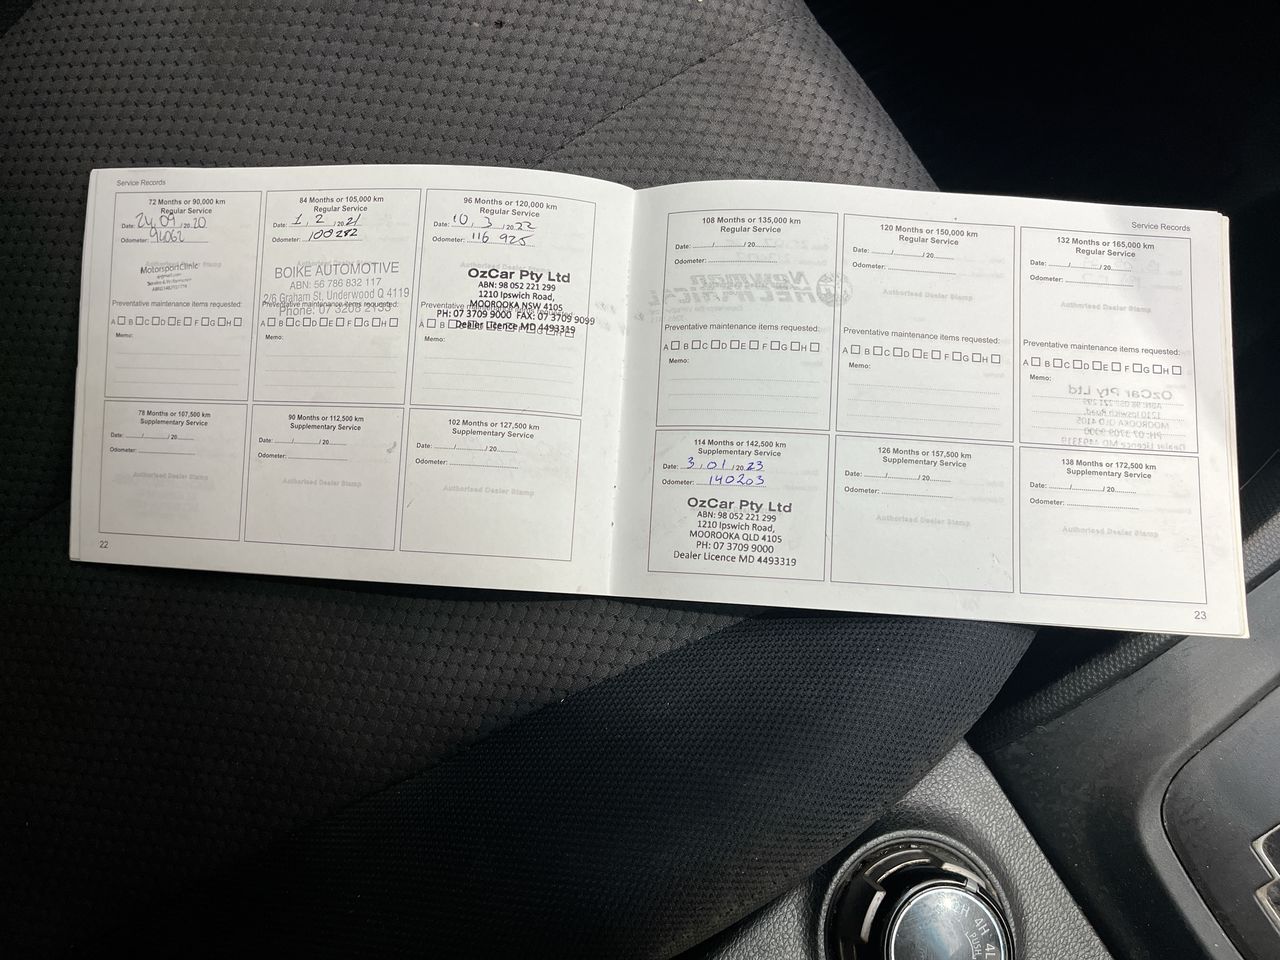 Service Records
72 Months or 90,000 km
Regular Service
Date: 24 / 09 / 20 20
Odometer: 94062
MotorsportClinic
Preventative maintenance items requested:
A B C D E F G H
Memo:
84 Months or 105,000 km
Regular Service
Date: 1 / 2 / 20 21
Odometer: 100282
BOIKE AUTOMOTIVE
ABN: 56 786 832 117
2/6 Graham St, Underwood Q 4119
Phone: 07 3208 2133
Preventative maintenance items requested:
A B C D E F G H
Memo:
96 Months or 120,000 km
Regular Service
Date: 10 / 3 / 20 22
Odometer: 116 925
OzCar Pty Ltd
ABN: 98 052 221 299
1210 Ipswich Road,
MOOROOKA NSW 4105
PH: 07 3709 9000 FAX: 07 3709 9099
Dealer Licence MD 4493319
A B
Memo:
78 Months or 107,500 km
Supplementary Service
Date: / / 20
Odometer:
Authorised Dealer Stamp
90 Months or 112,500 km
Supplementary Service
Date: / / 20
Odometer:
Authorised Dealer Stamp
102 Months or 127,500 km
Supplementary Service
Date: / / 20
Odometer:
Authorised Dealer Stamp
22
Service Records
108 Months or 135,000 km
Regular Service
Date: / / 20
Odometer:
Preventative maintenance items requested:
A B C D E F G H
Memo:
120 Months or 150,000 km
Regular Service
Date: / / 20
Odometer:
Authorised Dealer Stamp
Preventative maintenance items requested:
A B C D E F G H
Memo:
132 Months or 165,000 km
Regular Service
Date: / / 20
Odometer:
Authorised Dealer Stamp
Preventative maintenance items requested:
A B C D E F G H
Memo:
114 Months or 142,500 km
Supplementary Service
Date: 3 / 01 / 20 23
Odometer: 140203
OzCar Pty Ltd
ABN: 98 052 221 299
1210 Ipswich Road,
MOOROOKA QLD 4105
PH: 07 3709 9000
Dealer Licence MD 4493319
126 Months or 157,500 km
Supplementary Service
Date: / / 20
Odometer:
Authorised Dealer Stamp
138 Months or 172,500 km
Supplementary Service
Date: / / 20
Odometer:
Authorised Dealer Stamp
23
2H 4H 4L
PUSH